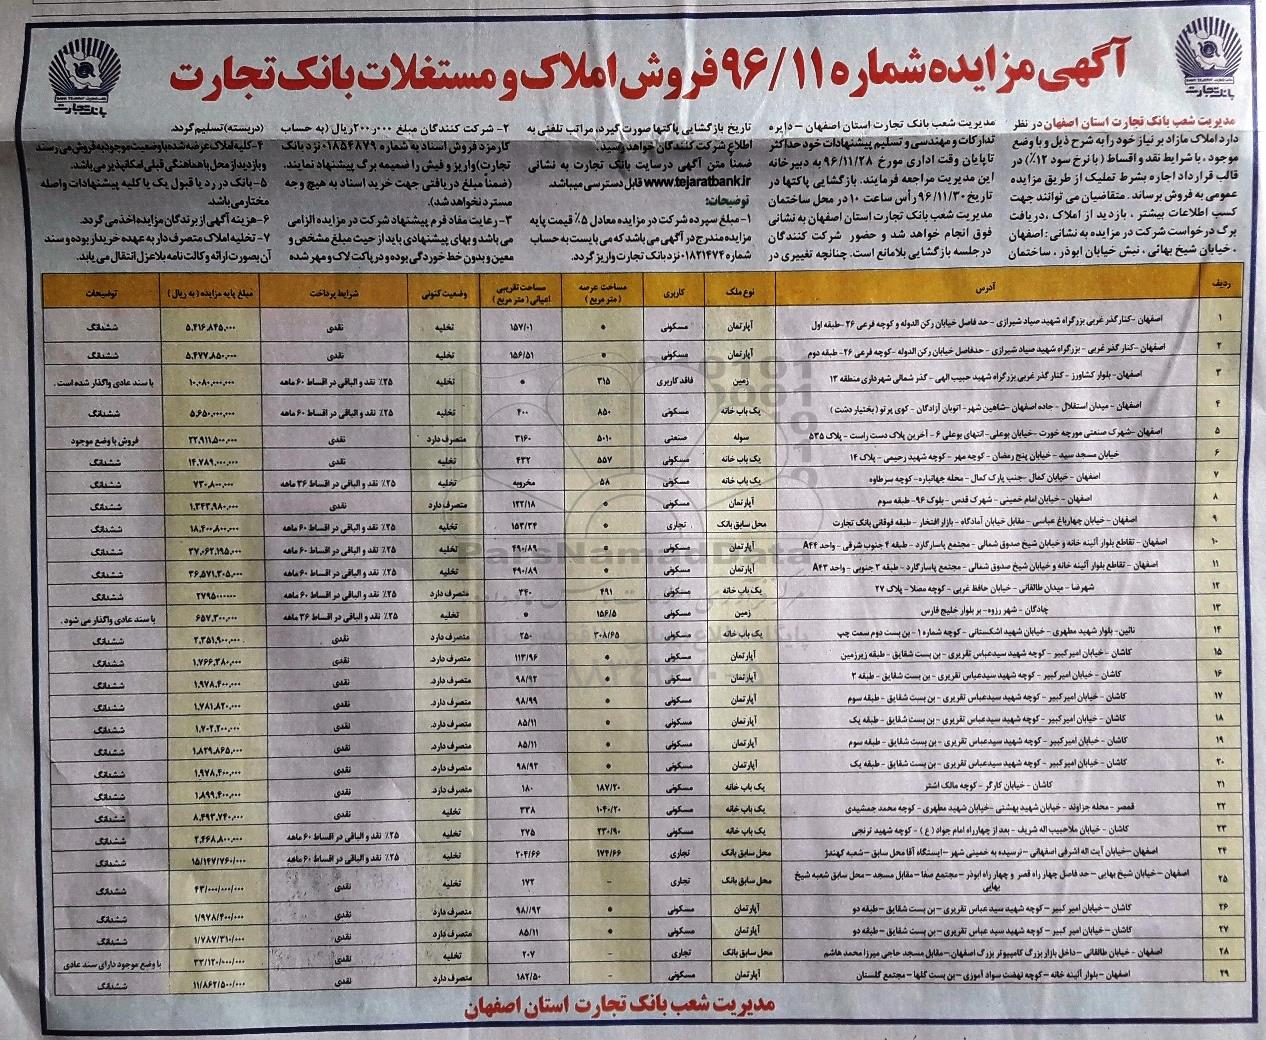 آگهی مزایده شماره ۹۶/۱۱ فروش املاک و مستغلات بانک تجارت
بانک تجارت
بانک تجارت
مدیریت شعب بانک تجارت استان اصفهان در نظر
دارد املاک مازاد بر نیاز خود را به شرح ذیل و با وضع
موجود ، با شرایط نقد و اقساط ( با نرخ سود ۱۲٪) در
قالب قرارداد اجاره بشرط تملیک از طریق مزایده
عمومی به فروش برساند. متقاضیان می توانند جهت
کسب اطلاعات بیشتر ، بازدید از املاک ،دریافت
برگ درخواست شرکت در مزایده به نشانی : اصفهان
، خیابان شیخ بهائی ، نبش خیابان ابوذر ، ساختمان
مدیریت شعب بانک تجارت استان اصفهان - دایره
تدارکات و مهندسی و تسلیم پیشنهادات خود حداکثر
تا پایان وقت اداری مورخ ۹۶/۱۱/۲۸ به دبیرخانه
این مدیریت مراجعه فرمایند. بازگشایی پاکتها در
تاریخ ۹۶/۱۱/۳۰ رأس ساعت ۱۰ در محل ساختمان
مدیریت شعب بانک تجارت استان اصفهان به نشانی
فوق انجام خواهد شد و حضور شرکت کنندگان
در جلسه بازگشایی بلامانع است. چنانچه تغییری در
تاریخ بازگشایی پاکتها صورت گیرد، مراتب تلفنی به
اطلاع شرکت کنندگان خواهد رسید.
ضمناً متن آگهی در سایت بانک تجارت به نشانی
www.tejaratbank.ir قابل دسترسی میباشد.
توضیحات:
۱- مبلغ سپرده شرکت در مزایده معادل ۵٪ قیمت پایه
مزایده مندرج در آگهی می باشد که می بایست به حساب
شماره ۰۱۸۲۱۴۷۴ نزد بانک تجارت واریز گردد.
۲- شرکت کنندگان مبلغ ۲۰۰٫۰۰۰ ریال (به حساب
کارمزد فروش اسناد به شماره ۰۱۸۵۴۸۷۹ نزد بانک
تجارت) واریز و فیش را ضمیمه برگ پیشنهاد نمایند.
(ضمناً مبلغ دریافتی جهت خرید اسناد به هیچ وجه
مسترد نخواهد شد).
۳- رعایت مفاد فرم پیشنهاد شرکت در مزایده الزامی
می باشد و بهای پیشنهادی باید از حیث مبلغ مشخص و
معین و بدون خط خوردگی بوده و در پاکت لاک و مهر شده
(دربسته) تسلیم گردد.
۴- کلیه املاک عرضه شده با وضعیت موجود به فروش می رسند
و بازدید از محل با هماهنگی قبلی امکانپذیر می باشد.
۵- بانک در رد یا قبول یک یا کلیه پیشنهادات واصله
مختار می باشد.
۶- هزینه آگهی از برندگان مزایده اخذ می گردد.
۷- تخلیه املاک متصرف دار به عهده خریدار بوده و سند
آن بصورت ارائه وکالت نامه بلاعزل انتقال می یابد.
ردیف آدرس نوع ملک کاربری مساحت عرصه (متر مربع) مساحت تقریبی اعیانی (متر مربع) وضعیت کنونی شرایط پرداخت مبلغ پایه مزایده (به ریال) توضیحات
۱ اصفهان -کنار گذر غربی بزرگراه شهید صیاد شیرازی - حد فاصل خیابان رکن الدوله و کوچه فرعی ۲۶ -طبقه اول آپارتمان مسکونی * ۱۵۷/۰۱ تخلیه نقدی ۵،۴۱۶،۸۴۵،۰۰۰ ششدانگ
۲ اصفهان -کنار گذر غربی - بزرگراه شهید صیاد شیرازی - حدفاصل خیابان رکن الدوله -کوچه فرعی ۲۶- طبقه دوم آپارتمان مسکونی * ۱۵۶/۵۱ تخلیه نقدی ۵،۴۷۷،۸۵۰،۰۰۰ ششدانگ
۳ اصفهان- بلوار کشاورز - کنار گذر غربی بزرگراه شهید حبیب الهی - گذر شمالی شهرداری منطقه ۱۳ زمین فاقد کاربری ۳۱۵ * تخلیه ۲۵٪ نقد و الباقی در اقساط ۶۰ ماهه ۱۰،۰۸۰،۰۰۰،۰۰۰ با سند عادی واگذار شده است .
۴ اصفهان - میدان استقلال - جاده اصفهان -شاهین شهر- اتوبان آزادگان - کوی پرتو ( بختیار دشت ) یک باب خانه مسکونی ۸۵۰ ۴۰۰ تخلیه ۲۵٪ نقد و الباقی در اقساط ۶۰ ماهه ۵،۶۵۰،۰۰۰،۰۰۰ ششدانگ
۵ اصفهان -شهرک صنعتی مورچه خورت -خیابان بوعلی- انتهای بوعلی ۶ - آخرین پلاک دست راست - پلاک ۵۳۵ سوله صنعتی ۵۰۱۰ ۳۱۶۰ متصرف دارد نقدی ۲۲،۹۱۱،۵۰۰،۰۰۰ فروش با وضع موجود
۶ خیابان مسجد سید - خیابان پنج رمضان - کوچه مهر - کوچه شهید رحیمی - پلاک ۱۴ یک باب خانه مسکونی ۵۵۷ ۴۳۲ تخلیه نقدی ۱۴،۷۸۹،۰۰۰،۰۰۰ ششدانگ
۷ اصفهان - خیابان کمال -جنب پارک کمال - محله جهانباره -کوچه سرطاوه یک باب خانه مسکونی ۵۸ مخروبه تخلیه ۲۵٪ نقد و الباقی در اقساط ۳۶ ماهه ۷۳۰،۸۰۰،۰۰۰ ششدانگ
۸ اصفهان - خیابان امام خمینی - شهرک قدس - بلوک ۹۶- طبقه سوم آپارتمان مسکونی * ۱۲۲/۱۸ متصرف دارد نقدی ۱،۳۴۳،۹۸۰،۰۰۰ ششدانگ
۹ اصفهان - خیابان چهارباغ عباسی - مقابل خیابان آمادگاه - بازار افتخار - طبقه فوقانی بانک تجارت محل سابق بانک تجاری * ۱۵۳/۳۴ تخلیه ۲۵٪ نقد و الباقی در اقساط ۶۰ ماهه ۱۸،۴۰۰،۸۰۰،۰۰۰ ششدانگ
۱۰ اصفهان - تقاطع بلوار آئینه خانه و خیابان شیخ صدوق شمالی - مجتمع پاسارگارد - طبقه ۴ جنوب شرقی - واحد A۴۴ آپارتمان مسکونی * ۴۹۰/۸۹ تخلیه ۲۵٪ نقد و الباقی در اقساط ۶۰ ماهه ۳۷،۰۶۲،۱۹۵،۰۰۰ ششدانگ
۱۱ اصفهان - تقاطع بلوار آئینه خانه و خیابان شیخ صدوق شمالی - مجتمع پاسارگارد - طبقه ۳ جنوبی - واحد A۴۳ آپارتمان مسکونی * ۴۹۰/۸۹ تخلیه ۲۵٪ نقد و الباقی در اقساط ۶۰ ماهه ۳۶،۵۷۱،۳۰۵،۰۰۰ ششدانگ
۱۲ شهرضا - میدان طالقانی - خیابان حافظ غربی - کوچه مصلا - پلاک ۲۷ یک باب خانه مسکونی ۴۹۱ ۳۴۰ متصرف دارد ۲۵٪ نقد و الباقی در اقساط ۶۰ ماهه ۲۷۹۵۰۰۰۰۰۰ ششدانگ
۱۳ چادگان - شهر رزوه- بر بلوار خلیج فارس زمین مسکونی ۱۵۶/۵ * تخلیه ۲۵٪ نقد و الباقی در اقساط ۳۶ ماهه ۶۵۷،۳۰۰،۰۰۰ با سند عادی واگذار می شود .
۱۴ نائین- بلوار شهید مطهری - خیابان شهید اشکستانی - کوچه شماره ۱ - بن بست دوم سمت چپ یک باب خانه مسکونی ۳۰۸/۶۵ ۲۵۰ متصرف دارد نقدی ۲،۳۵۱،۹۰۰،۰۰۰ ششدانگ
۱۵ کاشان - خیابان امیرکبیر - کوچه شهید سیدعباس تقریری - بن بست شقایق - طبقه زیرزمین آپارتمان مسکونی * ۱۱۳/۹۶ متصرف دارد. نقدی ۱،۷۶۶،۳۸۰،۰۰۰ ششدانگ
۱۶ کاشان - خیابان امیر کبیر - کوچه شهید سیدعباس تقریری - بن بست شقایق - طبقه ۳ آپارتمان مسکونی * ۹۸/۹۲ متصرف دارد. نقدی ۱،۹۷۸،۴۰۰،۰۰۰ ششدانگ
۱۷ کاشان - خیابان امیرکبیر - کوچه شهید سیدعباس تقریری - بن بست شقایق - طبقه سوم آپارتمان مسکونی * ۹۸/۹۹ متصرف دارد. نقدی ۱،۷۸۱،۸۲۰،۰۰۰ ششدانگ
۱۸ کاشان - خیابان امیرکبیر - کوچه شهید سیدعباس تقریری - بن بست شقایق - طبقه یک آپارتمان مسکونی * ۸۵/۱۱ متصرف دارد. نقدی ۱،۷۰۲،۲۰۰،۰۰۰ ششدانگ
۱۹ کاشان - خیابان امیرکبیر - کوچه شهید سیدعباس تقریری - بن بست شقایق - طبقه سوم آپارتمان مسکونی * ۸۵/۱۱ متصرف دارد. نقدی ۱،۸۲۹،۸۶۵،۰۰۰ ششدانگ
۲۰ کاشان - خیابان امیرکبیر - کوچه شهید سیدعباس تقریری - بن بست شقایق - طبقه یک آپارتمان مسکونی * ۹۸/۹۲ متصرف دارد. نقدی ۱،۹۷۸،۴۰۰،۰۰۰ ششدانگ
۲۱ کاشان - خیابان کارگر - کوچه مالک اشتر یک باب خانه مسکونی ۱۸۷/۲۰ ۱۸۰ متصرف دارد. نقدی ۱،۸۹۹،۴۰۰،۰۰۰ ششدانگ
۲۲ قمصر - محله جزاوند - خیابان شهید بهشتی -خیابان شهید مطهری - کوچه محمد جمشیدی یک باب خانه مسکونی ۱۰۴۰/۲۰ ۳۳۸ تخلیه نقدی ۸،۴۹۳،۷۴۰،۰۰۰ ششدانگ
۲۳ کاشان - خیابان ملاحبیب اله شریف - بعد از چهارراه امام جواد ( ع ) - کوچه شهید ترنجی یک باب خانه مسکونی ۲۳۰/۹۰ ۲۷۵ تخلیه ۲۵٪ نقد و الباقی در اقساط ۶۰ ماهه ۲،۴۶۸،۸۰۰،۰۰۰ ششدانگ
۲۴ اصفهان -خیابان آیت اله اشرفی اصفهانی -نرسیده به خمینی شهر -ایستگاه آقا محل سابق -شعبه کهندژ محل سابق بانک تجاری ۱۷۴/۶۶ ۲۰۴/۶۶ تخلیه ۲۵٪ نقد و الباقی در اقساط ۶۰ ماهه ۱۵/۱۴۷/۷۶۰/۰۰۰ ششدانگ
۲۵ اصفهان -خیابان شیخ بهایی - حد فاصل چهار راه قصر و چهار راه ابوذر - مجتمع صفا - مقابل مسجد - محل سابق شعبه شیخ بهایی محل سابق بانک تجاری - ۱۷۲ تخلیه نقدی ۴۳/۰۰۰/۰۰۰/۰۰۰ ششدانگ
۲۶ کاشان - خیابان امیر کبیر - کوچه شهید سید عباس تقریری -بن بست شقایق -طبقه دو آپارتمان مسکونی * ۹۸/۹۲ متصرف دارد نقدی ۱/۹۷۸/۴۰۰/۰۰۰ ششدانگ
۲۷ کاشان - خیابان امیر کبیر - کوچه شهید سید عباس تقریری -بن بست شقایق -طبقه دو آپارتمان مسکونی * ۸۵/۱۱ متصرف دارد. نقدی ۱/۷۸۷/۳۱۰/۰۰۰ ششدانگ
۲۸ اصفهان - خیابان طالقانی -داخل بازار بزرگ کامپیوتر بزرگ اصفهان-مقابل مسجد حاجی میرزا محمد هاشم محل سابق بانک تجاری - ۲۰۷ تخلیه نقدی ۳۳/۱۲۰/۰۰۰/۰۰۰ با وضع موجود دارای سند عادی
۲۹ اصفهان - بلوار آئینه خانه - کوچه نهضت سواد آموزی -بن بست گلها - مجتمع گلستان آپارتمان مسکونی - ۱۸۲/۵۰ متصرف دارد نقدی ۱۱/۸۶۲/۵۰۰/۰۰۰ ششدانگ
مدیریت شعب بانک تجارت استان اصفهان
ParsNamadData